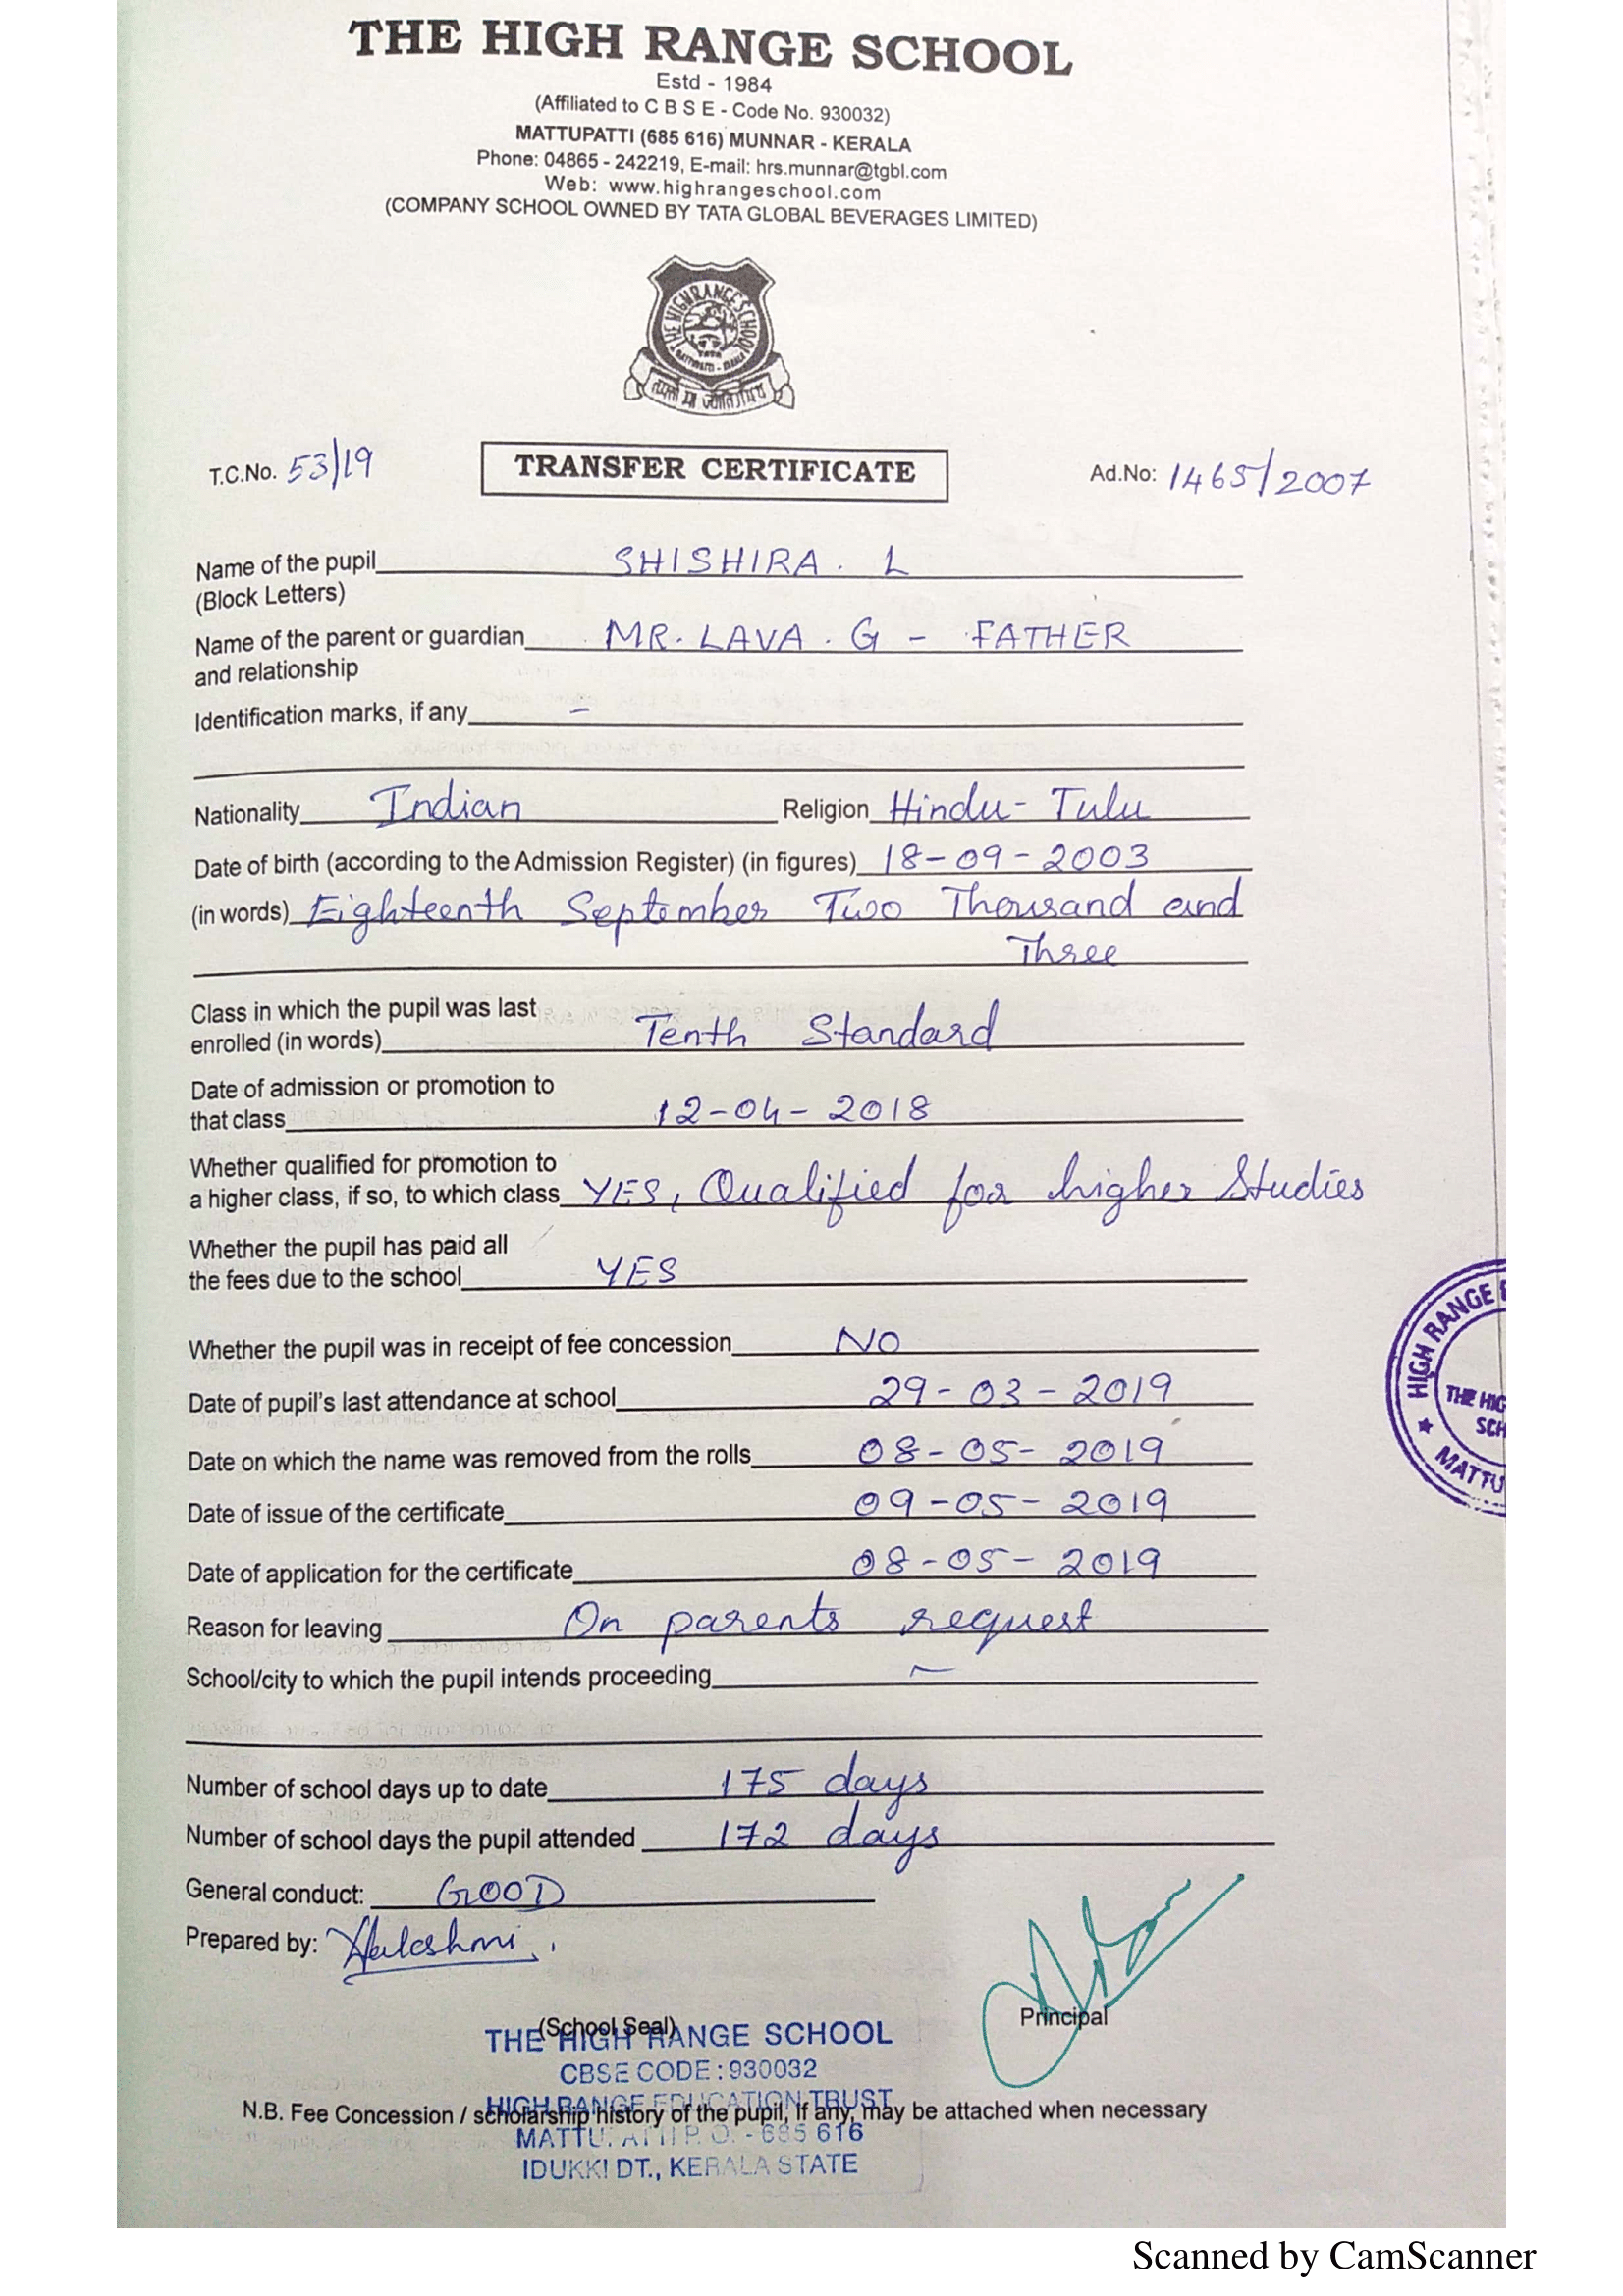 THE HIGH RANGE SCHOOL
Estd - 1984
(Affiliated to C B S E - Code No. 930032)
MATTUPATTI (685 616) MUNNAR - KERALA
Phone: 04865 - 242219, E-mail: hrs.munnar@tgbl.com
Web: www.highrangeschool.com
(COMPANY SCHOOL OWNED BY TATA GLOBAL BEVERAGES LIMITED)
THE HIGH RANGE SCHOOL
T.C.No. 53/19 TRANSFER CERTIFICATE Ad.No: 1465/2007
Name of the pupil SHISHIRA. L
(Block Letters)
Name of the parent or guardian MR. LAVA. G - FATHER
and relationship
Identification marks, if any -
Nationality Indian Religion Hindu - Tulu
Date of birth (according to the Admission Register) (in figures) 18-09-2003
(in words) Eighteenth September Two Thousand and
Three
Class in which the pupil was last
enrolled (in words) Tenth Standard
Date of admission or promotion to
that class 12-04-2018
Whether qualified for promotion to
a higher class, if so, to which class YES, Qualified for higher Studies
Whether the pupil has paid all
the fees due to the school YES
Whether the pupil was in receipt of fee concession NO
Date of pupil's last attendance at school 29-03-2019
Date on which the name was removed from the rolls 08-05-2019
Date of issue of the certificate 09-05-2019
Date of application for the certificate 08-05-2019
Reason for leaving On parents request
School/city to which the pupil intends proceeding -
Number of school days up to date 175 days
Number of school days the pupil attended 172 days
General conduct: GOOD
Prepared by:
HIGH RANGE
THE HIG
SCH
MATTU
Principal
(School Seal)
THE HIGH RANGE SCHOOL
CBSE CODE : 930032
HIGH RANGE EDUCATION TRUST
N.B. Fee Concession / scholarship history of the pupil, If any, may be attached when necessary
P. O. - 685 616
IDUKKI DT., KERALA STATE
Scanned by CamScanner